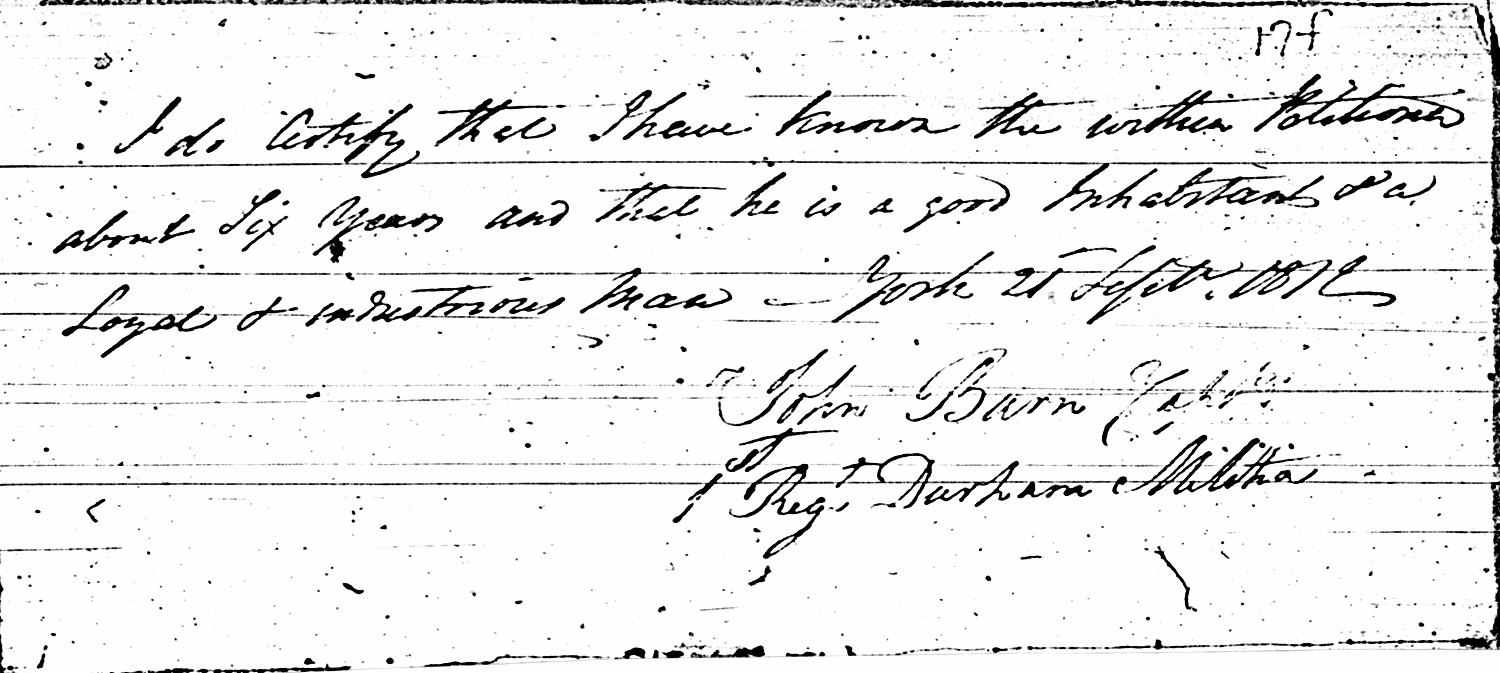 17f
I do Certify that I have known the within Petitioner
about Six Years and that he is a good Inhabitant & a
Loyal & industrious Man — York 21 Septr. 1812
John Burn Captn
1st Regt Durham Militia